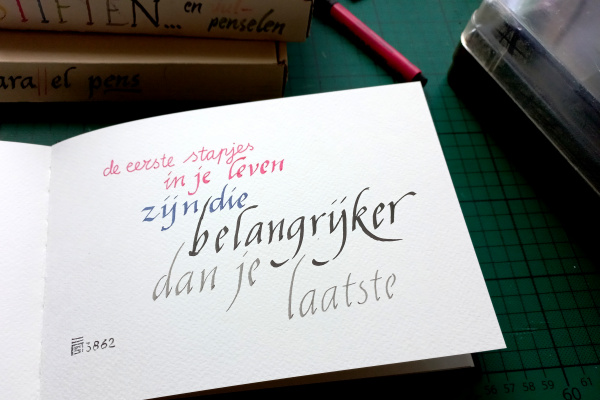 STIFTEN... en
penselen
el pens
de eerste stapjes
in je leven
zijn die
belangrijker
dan je
laatste
3862
56 57 58 59 60 61